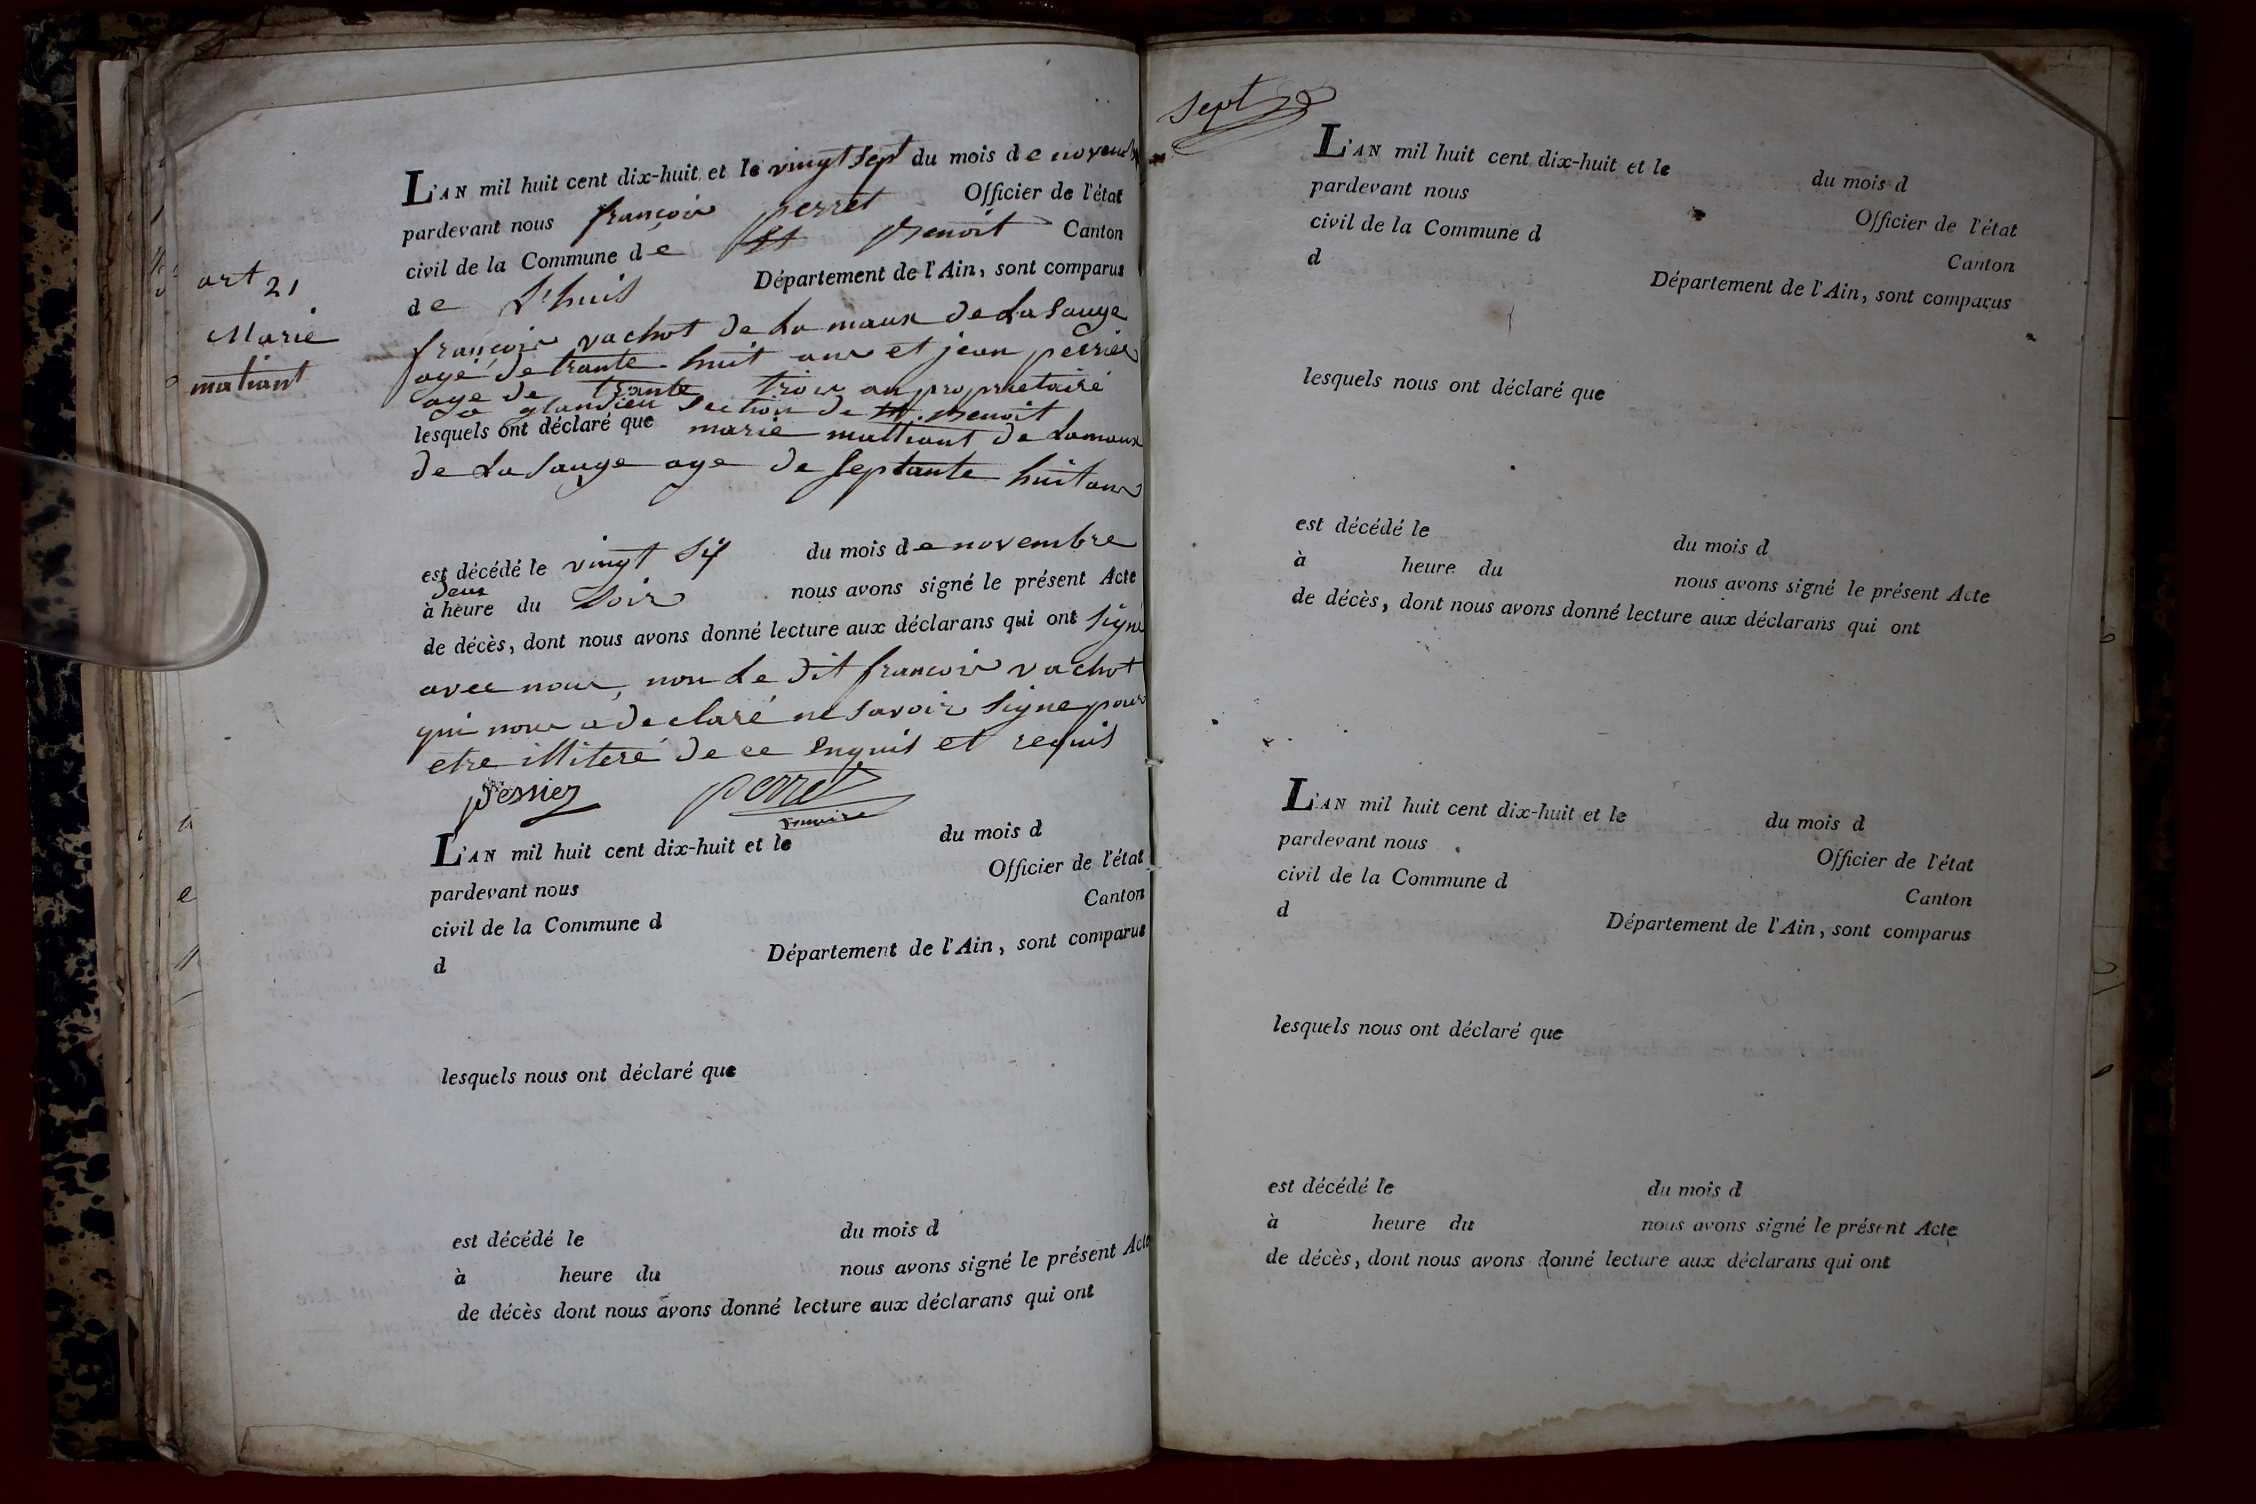 art 21
Marie
matiant
L'AN mil huit cent dix-huit et le vingt sept du mois de novembre
pardevant nous françois perret Officier de l'état
civil de la Commune de St Benoit Canton
de L'huis Département de l'Ain, sont comparus
françois vachot de La maux de La Sauge
agé de trante huit ans et jean perrier
age de trante trois an propriétairé
a glandieu section de St. Benoit
lesquels ont déclaré que marie mattiant de Lamaux
de La Sauge age de septante huit ans
est décédé le vingt six du mois de novembre
deux
à heure du Soir nous avons signé le présent Acte
de décès, dont nous avons donné lecture aux déclarans qui ont signé
avec nous, non Le dit françois vachot
qui nous a declaré ne savoir signe pour
etre illiteré de ce enquis et requis
perrier perret
L'AN mil huit cent dix-huit et le du mois d
pardevant nous Officier de l'état
civil de la Commune d Canton
d Département de l'Ain, sont comparus
lesquels nous ont déclaré que
est décédé le du mois d
à heure du nous avons signé le présent Acte
de décès dont nous avons donné lecture aux déclarans qui ont
Sept
L'AN mil huit cent dix-huit et le du mois d
pardevant nous Officier de l'état
civil de la Commune d Canton
d Département de l'Ain, sont comparus
lesquels nous ont déclaré que
est décédé le du mois d
à heure du nous avons signé le présent Acte
de décès, dont nous avons donné lecture aux déclarans qui ont
L'AN mil huit cent dix-huit et le du mois d
pardevant nous Officier de l'état
civil de la Commune d Canton
d Département de l'Ain, sont comparus
lesquels nous ont déclaré que
est décédé le du mois d
à heure du nous avons signé le présent Acte
de décès, dont nous avons donné lecture aux déclarans qui ont